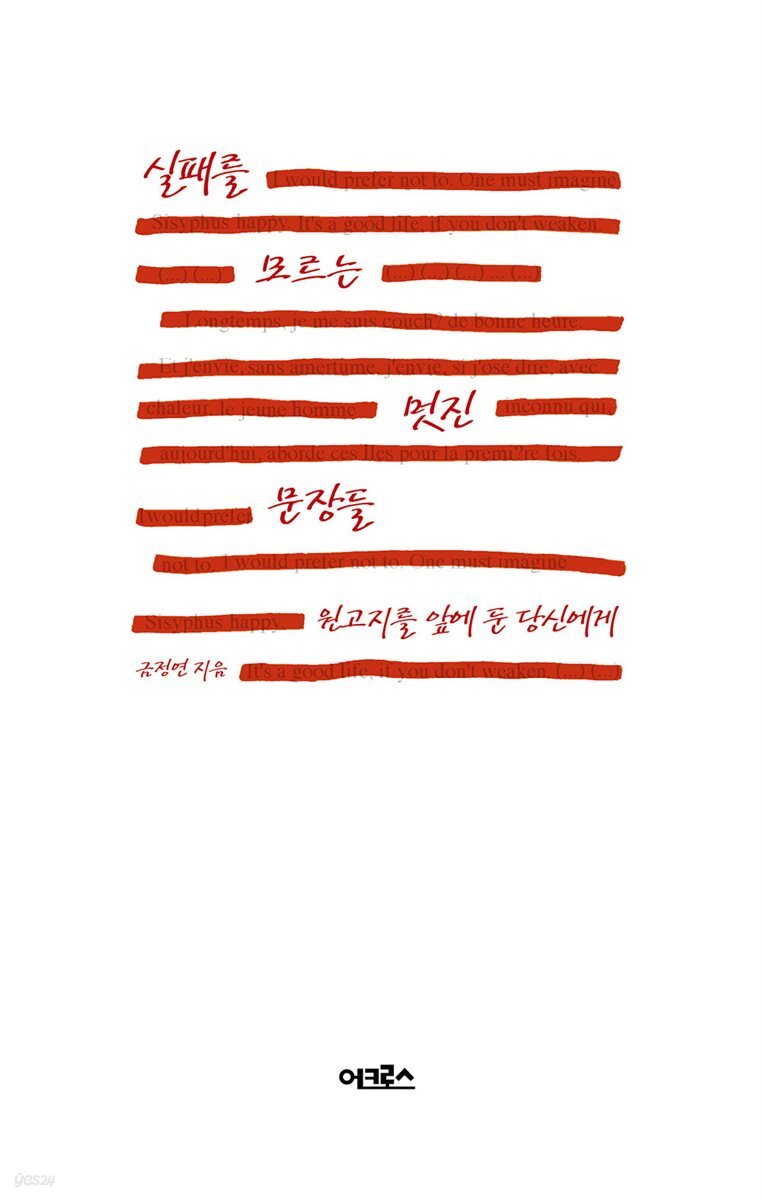 실패를 I would prefer not to. One must imagine
Sisyphus happy. It's a good life, if you don't weaken.
(...) (...) 모르는 (...) (...) (...) ... (...)
Longtemps, je me suis couch? de bonne heure.
Et j'envie, sans amertume, j'envie, si j'ose dire, avec
chaleur, le jeune homme 멋진 inconnu qui,
aujourd'hui, aborde ces Iles pour la premi?re fois
I would prefer 문장들
not to. I would prefer not to. One must imagine
Sisyphus happy. 원고지를 앞에 둔 당신에게
금정연 지음 It's a good life, if you don't weaken. (...) (...)
어크로스
yes24